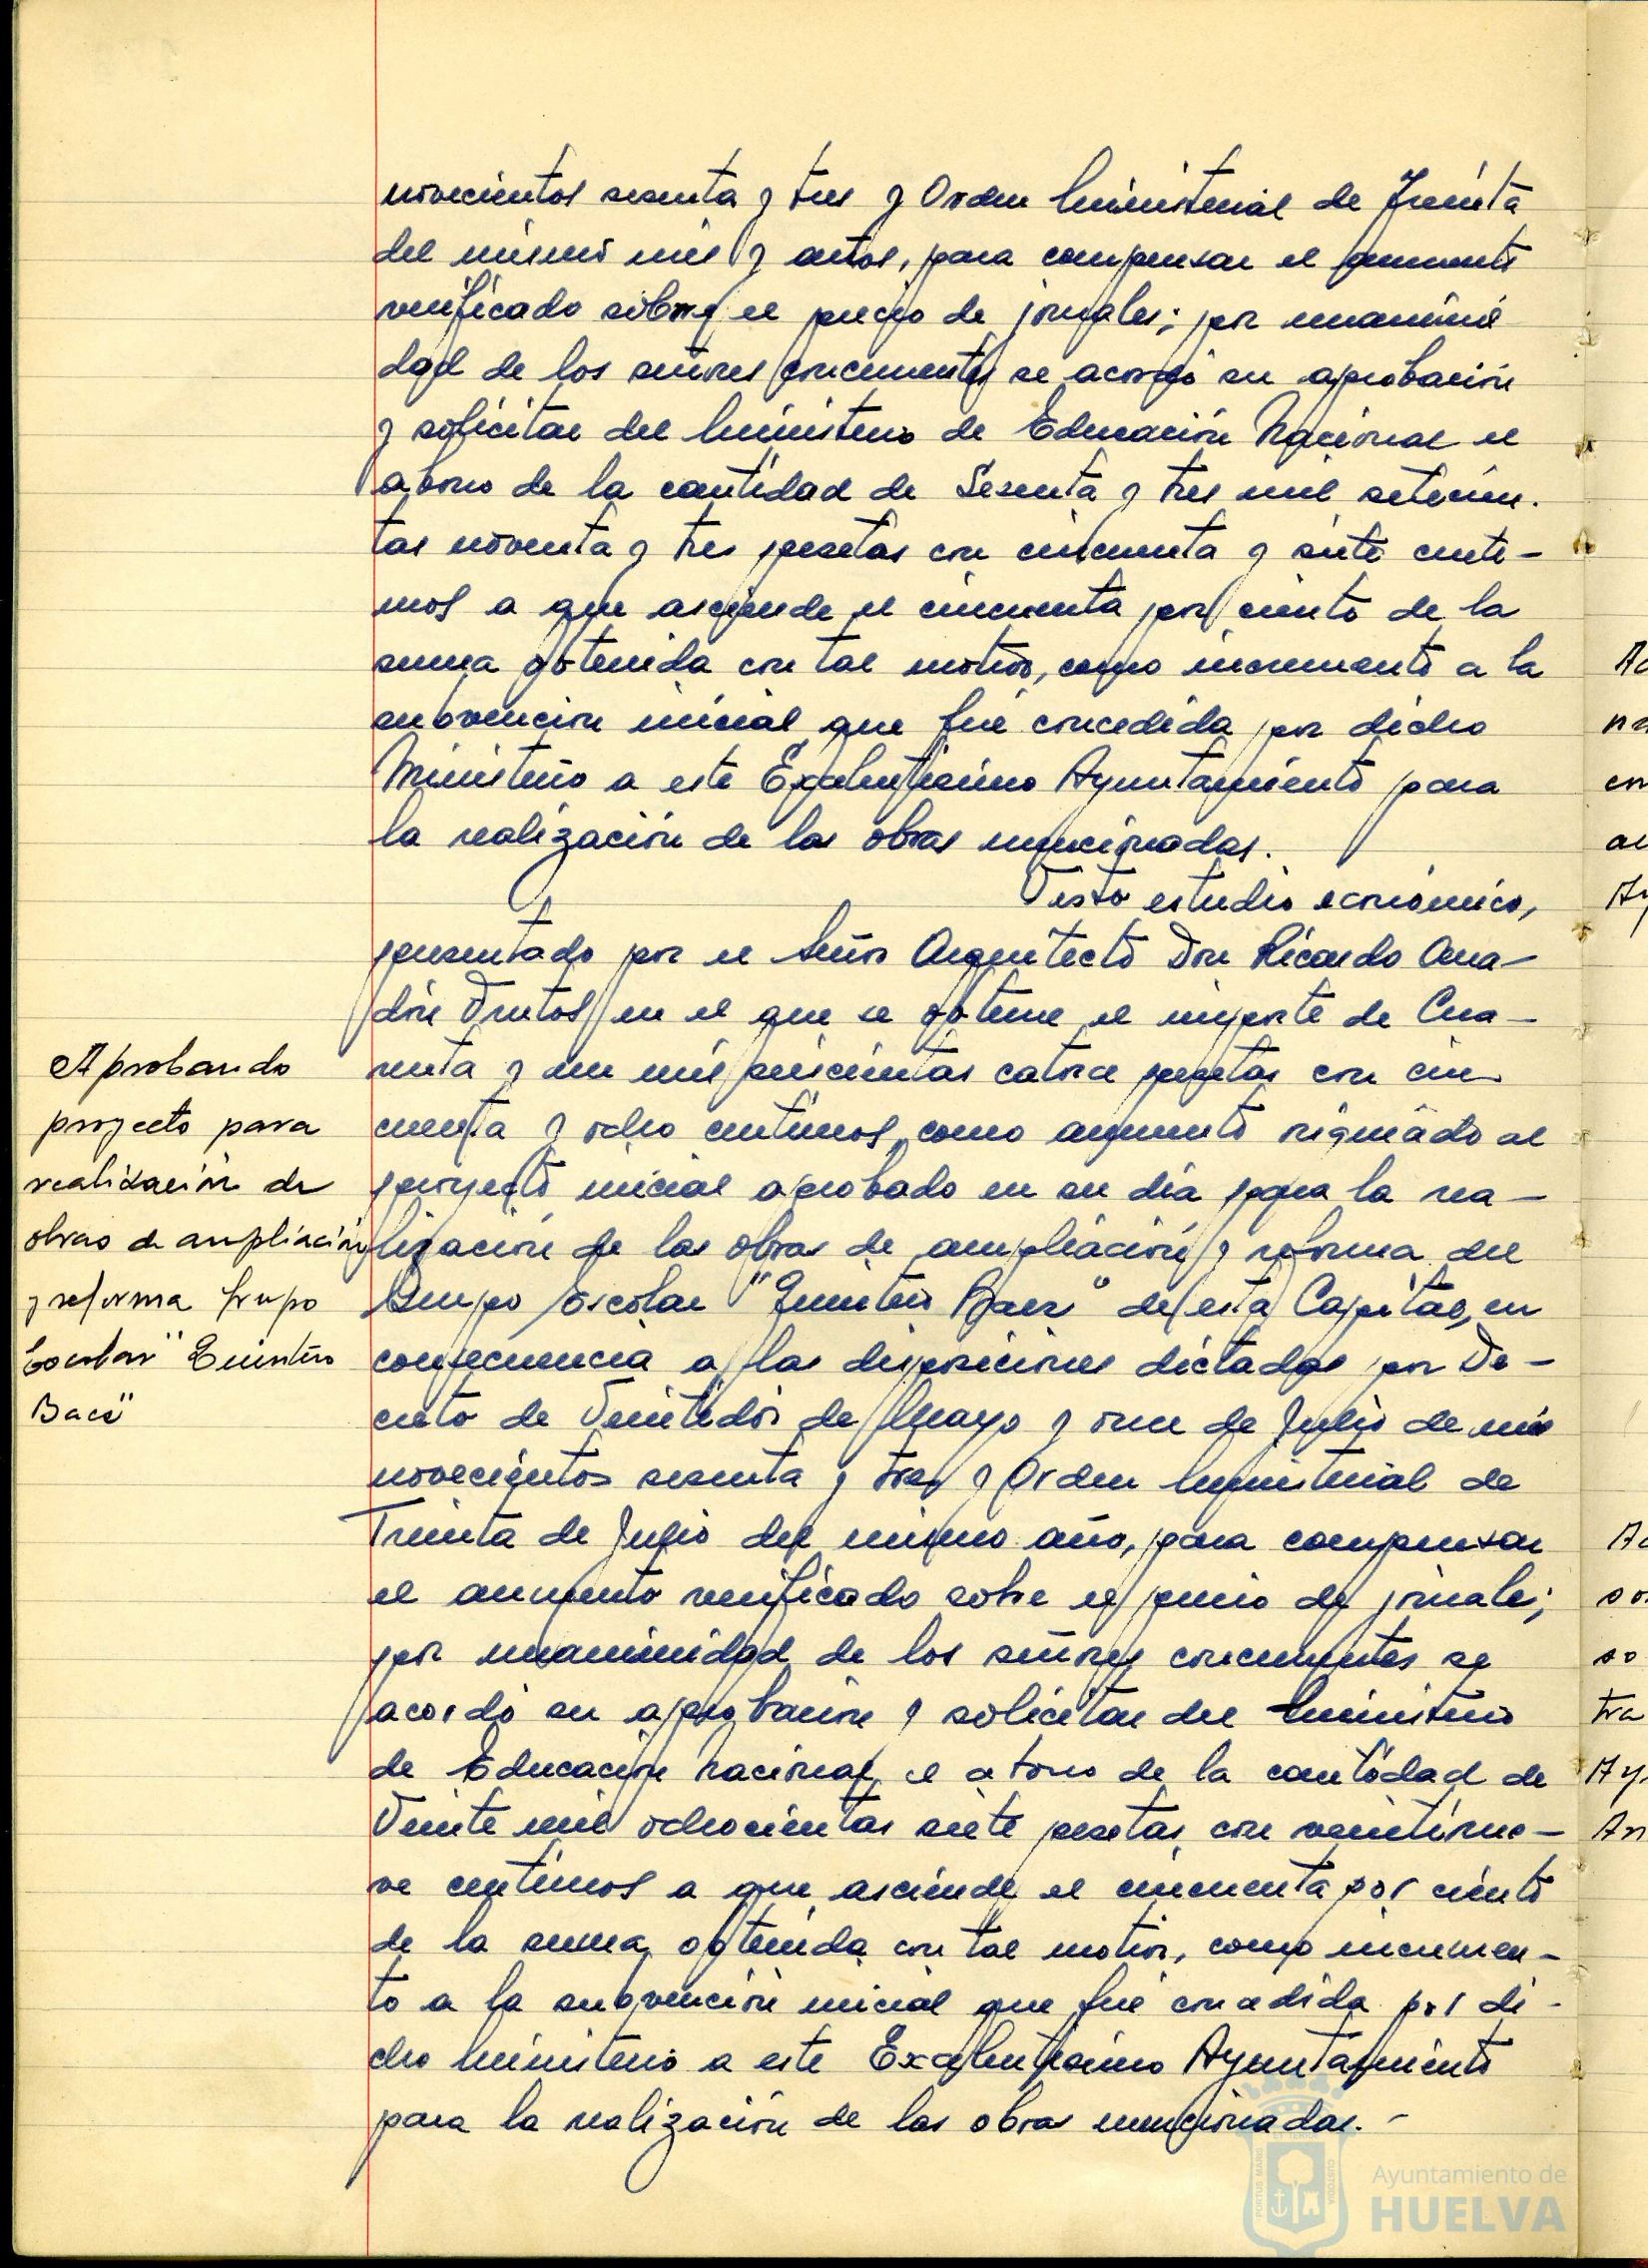 novecientos sesenta y tres y Orden Ministerial de Treinta
del mismo mes y años, para compensar el aumento
verificado sobre el precio de jornales; por unanimi
dad de los señores concurrentes se acordó su aprobación
y solicitar del Ministerio de Educación Nacional el
abono de la cantidad de Sesenta y tres mil setecien-
tas noventa y tres pesetas con cincuenta y siete cénti-
mos a que asciende el cincuenta por ciento de la
suma obtenida con tal motivo, como incremento a la
subvención inicial que fué concedida por dicho
Ministerio a este Excelentísimo Ayuntamiento para
la realización de las obras mencionadas.
Visto estudio económico,
presentado por el Señor Arquitecto Don Ricardo Ana-
dón Frutos en el que se obtiene el importe de Cua-
renta y un mil seiscientas catorce pesetas con cin-
cuenta y ocho céntimos, como aumento originado al
proyecto inicial aprobado en su día para la rea-
lización de las obras de ampliación y reforma del
Grupo Escolar "Quintero Baez" de esta Capital, en
consecuencia a las disposiciones dictadas por De-
creto de Veintidós de Mayo y once de Julio de mil
novecientos sesenta y tres y Orden Ministerial de
Treinta de Julio del mismo año, para compensar
el aumento verificado sobre el precio de jornales;
por unanimidad de los señores concurrentes se
acordó su aprobación y solicitar del Ministerio
de Educación Nacional el abono de la cantidad de
Veinte mil ochocientas siete pesetas con veintinue-
ve céntimos a que asciende el cincuenta por ciento
de la suma obtenida con tal motivo, como incremen-
to a la subvención inicial que fué concedida por di-
cho Ministerio a este Excelentísimo Ayuntamiento
para la realización de las obras mencionadas.-
Aprobando
proyecto para
realización de
obras de ampliación
y reforma Grupo
Escolar "Quintero
Baez"
Ayuntamiento de
HUELVA